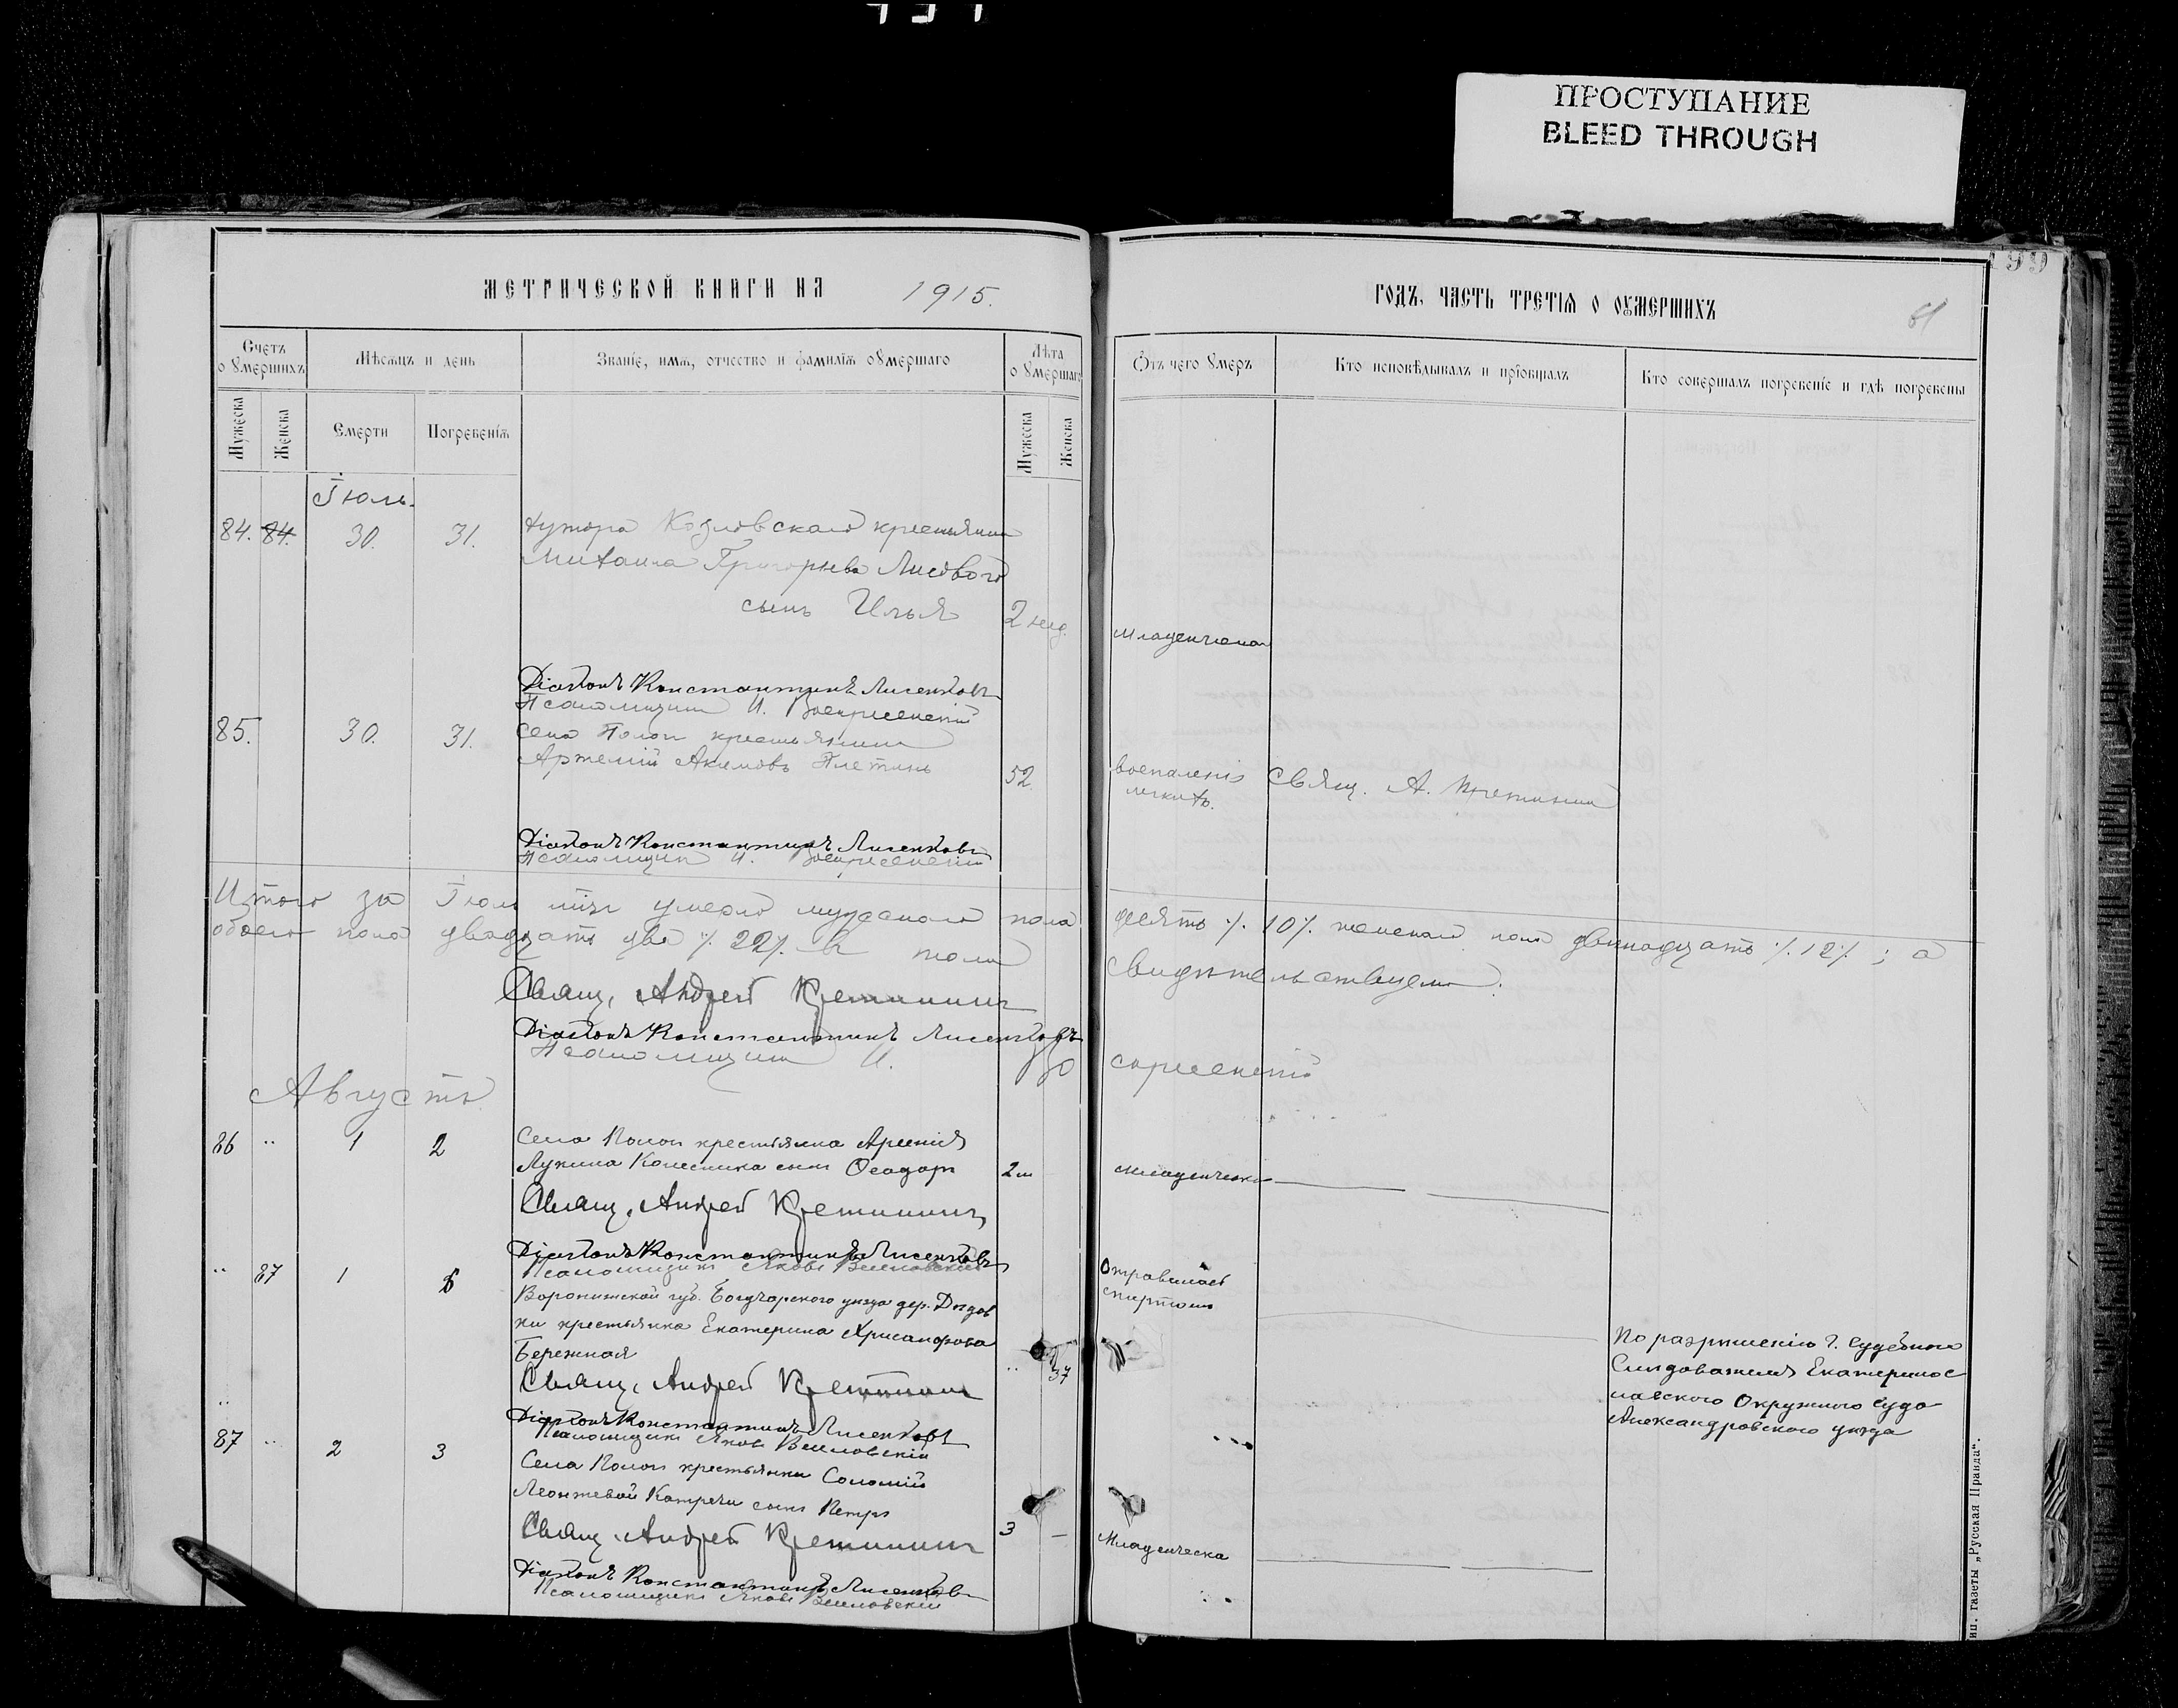 ПРОСТУПАНИЕ
BLEED THROUGH
199
МЕТРИЧЕСКОЙ КНИГИ НА 1915.
ГОДЪ, ЧАСТЬ ТРЕТІЯ О ОУМЕРШИХЪ
61
Счетъ о Умершихъ
Мѣсяцъ и день
Званіе, имя, отчество и фамилія оумершаго
Лѣта оумершаго
Отъ чего умеръ
Кто исповѣдывалъ и пріобщалъ
Кто совершалъ погребеніе и гдѣ погребены
Мужеска
Женска
Смерти
Погребенія
Мужеска
Женска
Іюль.
84. 84. 30. 31. Хутора Козловскаго крестьянина
Михаила Григорьева Лисового
сынъ Илья 2 нед. Младенческая
Діаконъ Константинъ Лисенковъ
Псаломщикъ И. Воскресенскій
85. 30. 31. Села Пологи крестьянинъ
Артемій Акимовъ Плетинь 52. воспаленіе легкихъ. Свящ. А. Кретининъ
Діаконъ Константинъ Лисенковъ
Псаломщикъ И. Воскресенскій
Итого за Іюль мѣс умерло мужескаго пола десять /. 10 /. женскаго пола двѣнадцать /. 12 /. ; а
обоего пола двадцать два /. 22 /. въ томъ свидѣтельствуемъ:
Свящ. Андрей Кретининъ
Діаконъ Константинъ Лисенковъ
Псаломщикъ И. Воскресенскій
Августъ
86 " 1 2 Села Пологи крестьянина Арсенія
Лукина Колесника сынъ Ѳеодоръ 2 м младенческая
Свящ. Андрей Кретининъ
Діаконъ Константинъ Лисенковъ
Псаломщикъ Яковъ Веселовскій
" 87 1 5 Воронежской губ. Богучарского уѣзда дер. Дѣдов
ки крестьянка Екатерина Хрисанфова
Бережная " 37
Отравилась
спиртомъ
По разрѣшенію Г. Судебного
Слѣдователя Екатеринос
лавского Окружного Суда
Александровского уѣзда
Свящ. Андрей Кретининъ
Діаконъ Константинъ Лисенковъ
Псаломщикъ Яковъ Веселовскій
87 " 2 3 Села Пологи крестьянки Соломіи
Леонтевой Катречи сынъ Петръ 3 — Младенческа
Свящ. Андрей Кретининъ
Діаконъ Константинъ Лисенковъ
Псаломщикъ Яковъ Веселовскій
газеты „Русская Правда".